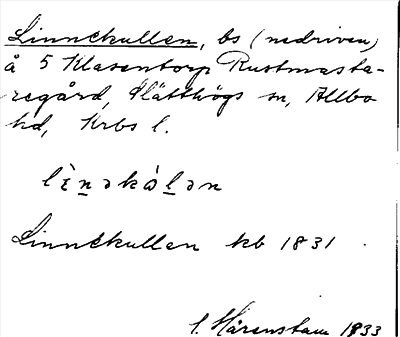 Linnekullen, bs (nedriven)
å 5 Klasentorp Rustmästa-
regård, Slätthögs sn, Allbo
hd, Krbs l.
lènəkàlən
Linnekullen kb 1831.
l. Hårenstam 1833